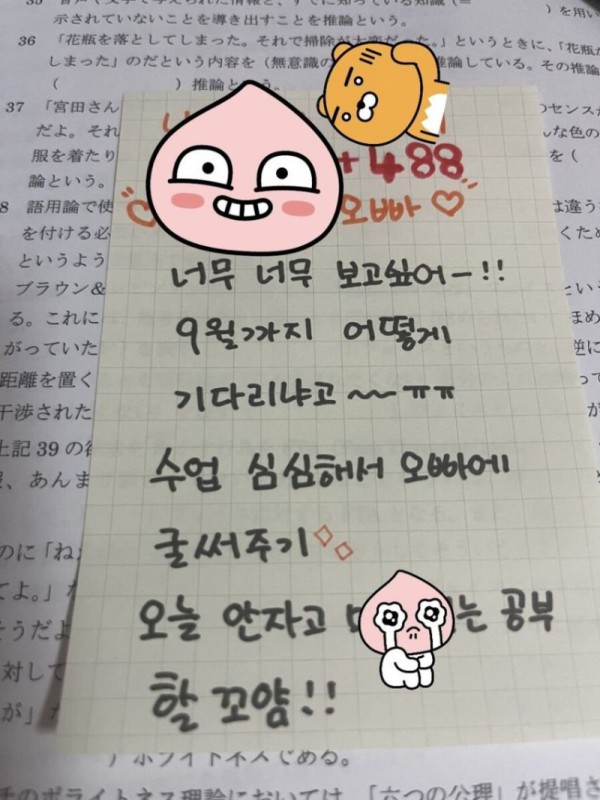 示されていないことを導き出すことを推論という。
)を用い
36 「花瓶を落としてしまった。それで掃除が大変だった。」というときに、「花瓶が
しまった」のだという内容を(無意識の 推論している。その推論
( )推論という。
37 「宮田さん のセンスが
だよ。それ んな色の
服を着たり を(
論という。
8 語用論で使 は違う
を付ける必 くため
というよう
ブラウン& という
る。これに ほめ
がっていた 逆に
距離を置く
干渉された
上記 39 の
、あんま
のに「ね
てよ。」
そうだよ
対して
が」
+488
오빠♡
너무 너무 보고싶어-!!
9월까지 어떻게
기다리냐고 ~~ ㅠㅠ
수업 심심해서 오빠에
글써주기
오늘 안자고 는 공부
할 꼬얌!!
)ポライトネスである。
のポライトネス理論においては、「六つの公理」が提唱さ